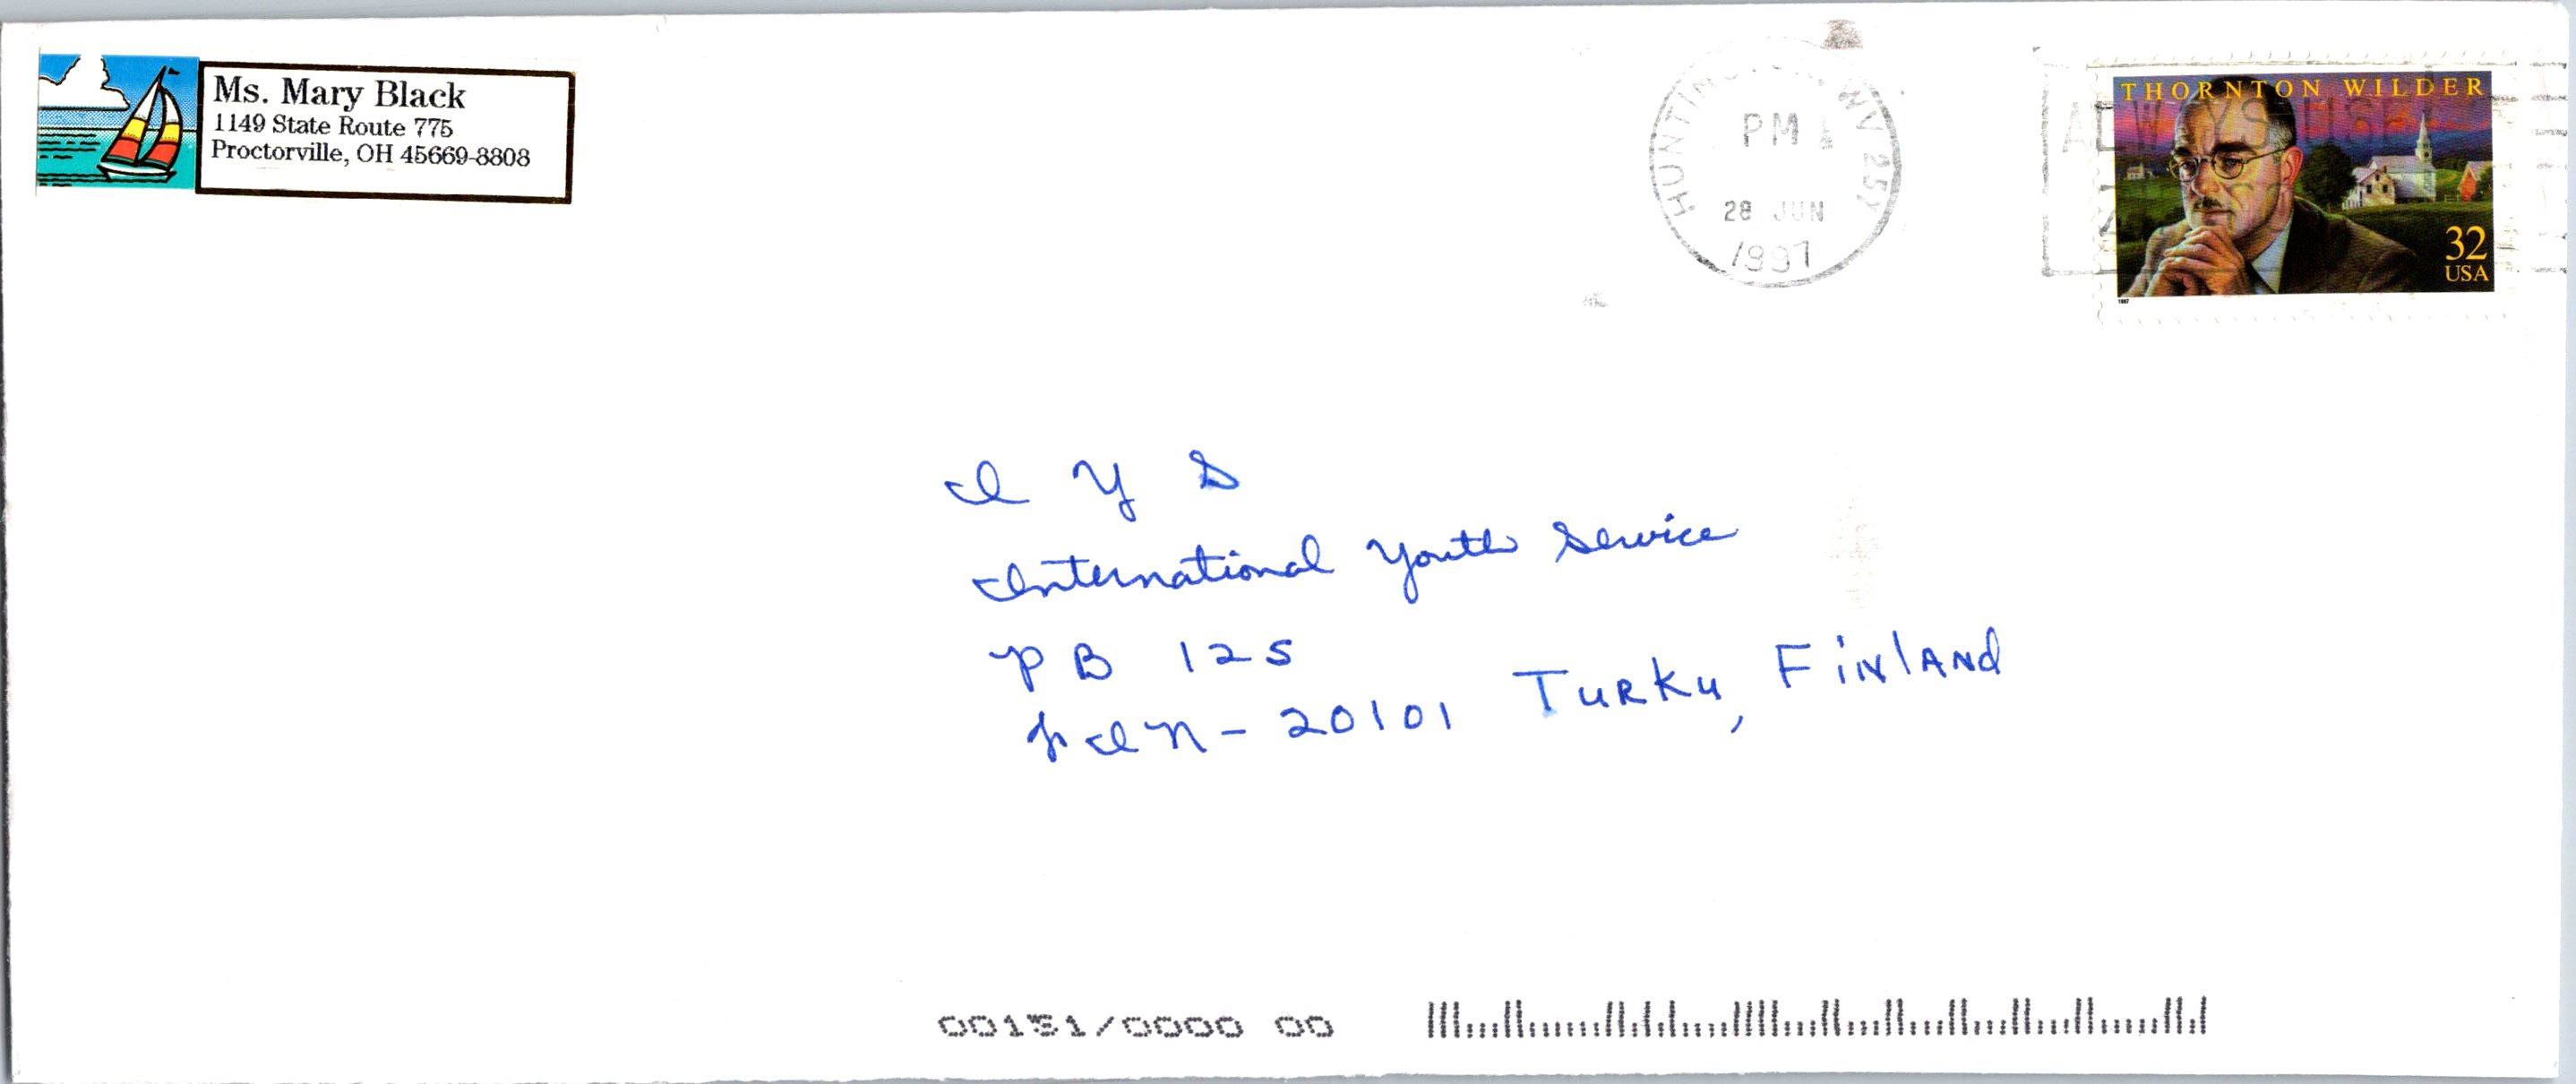 Ms. Mary Black
1149 State Route 775
Proctorville, OH 45669-8808
HUNTINGTON WV 257
PM
28 JUN
1997
ALWAYS USE
THORNTON WILDER
32
USA
1997
I Y S
International Youth Service
P B 125
FIN - 20101 Turku, Finland
00151/0000 00